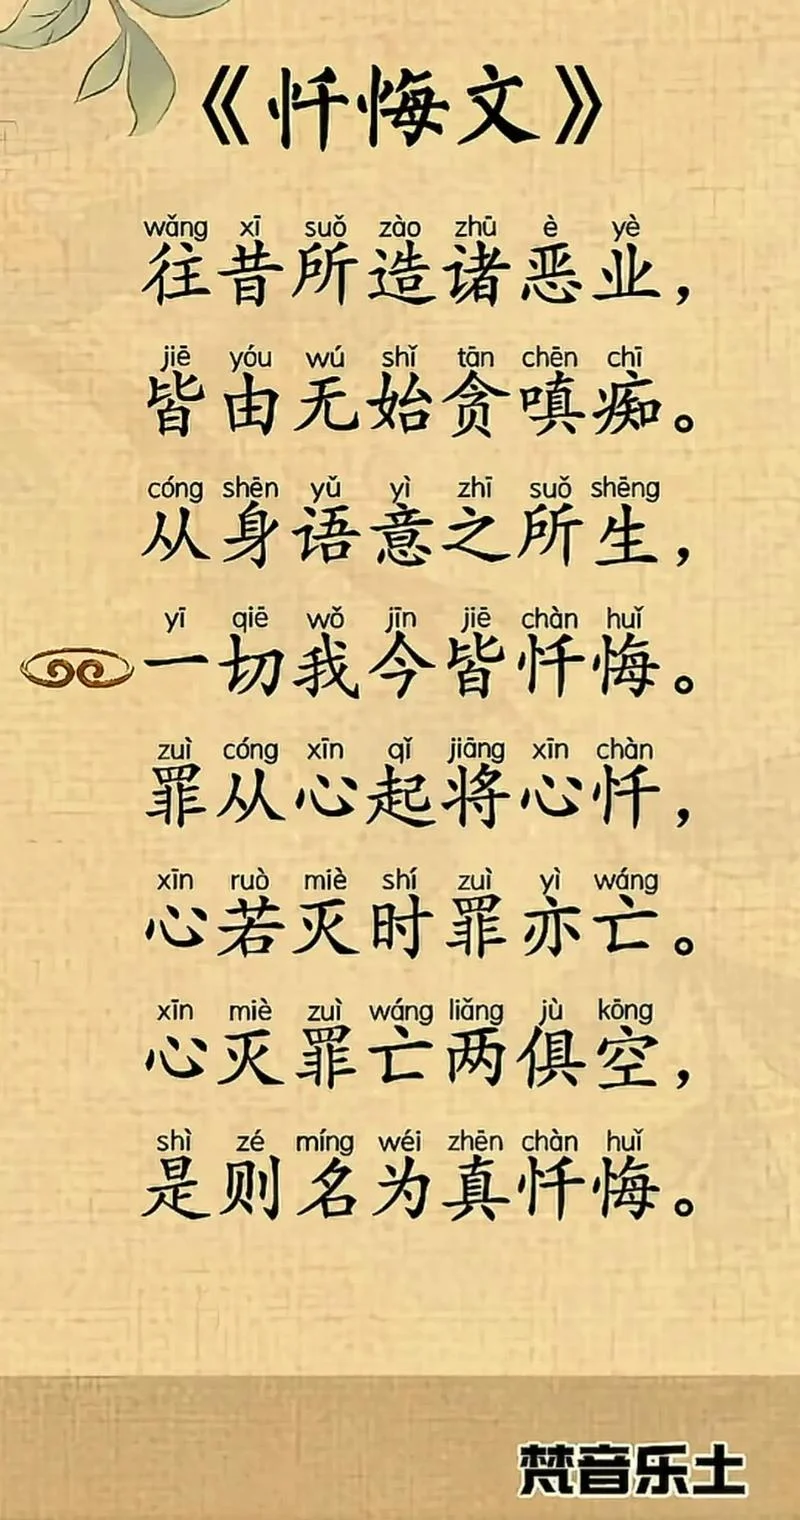 《忏悔文》
wǎng xī suǒ zào zhū è yè
往昔所造诸恶业，
jiē yóu wú shǐ tān chēn chī
皆由无始贪嗔痴。
cóng shēn yǔ yì zhī suǒ shēng
从身语意之所生，
yī qiē wǒ jīn jiē chàn huǐ
一切我今皆忏悔。
zuì cóng xīn qǐ jiāng xīn chàn
罪从心起将心忏，
xīn ruò miè shí zuì yì wáng
心若灭时罪亦亡。
xīn miè zuì wáng liǎng jù kōng
心灭罪亡两俱空，
shì zé míng wéi zhēn chàn huǐ
是则名为真忏悔。
梵音乐土